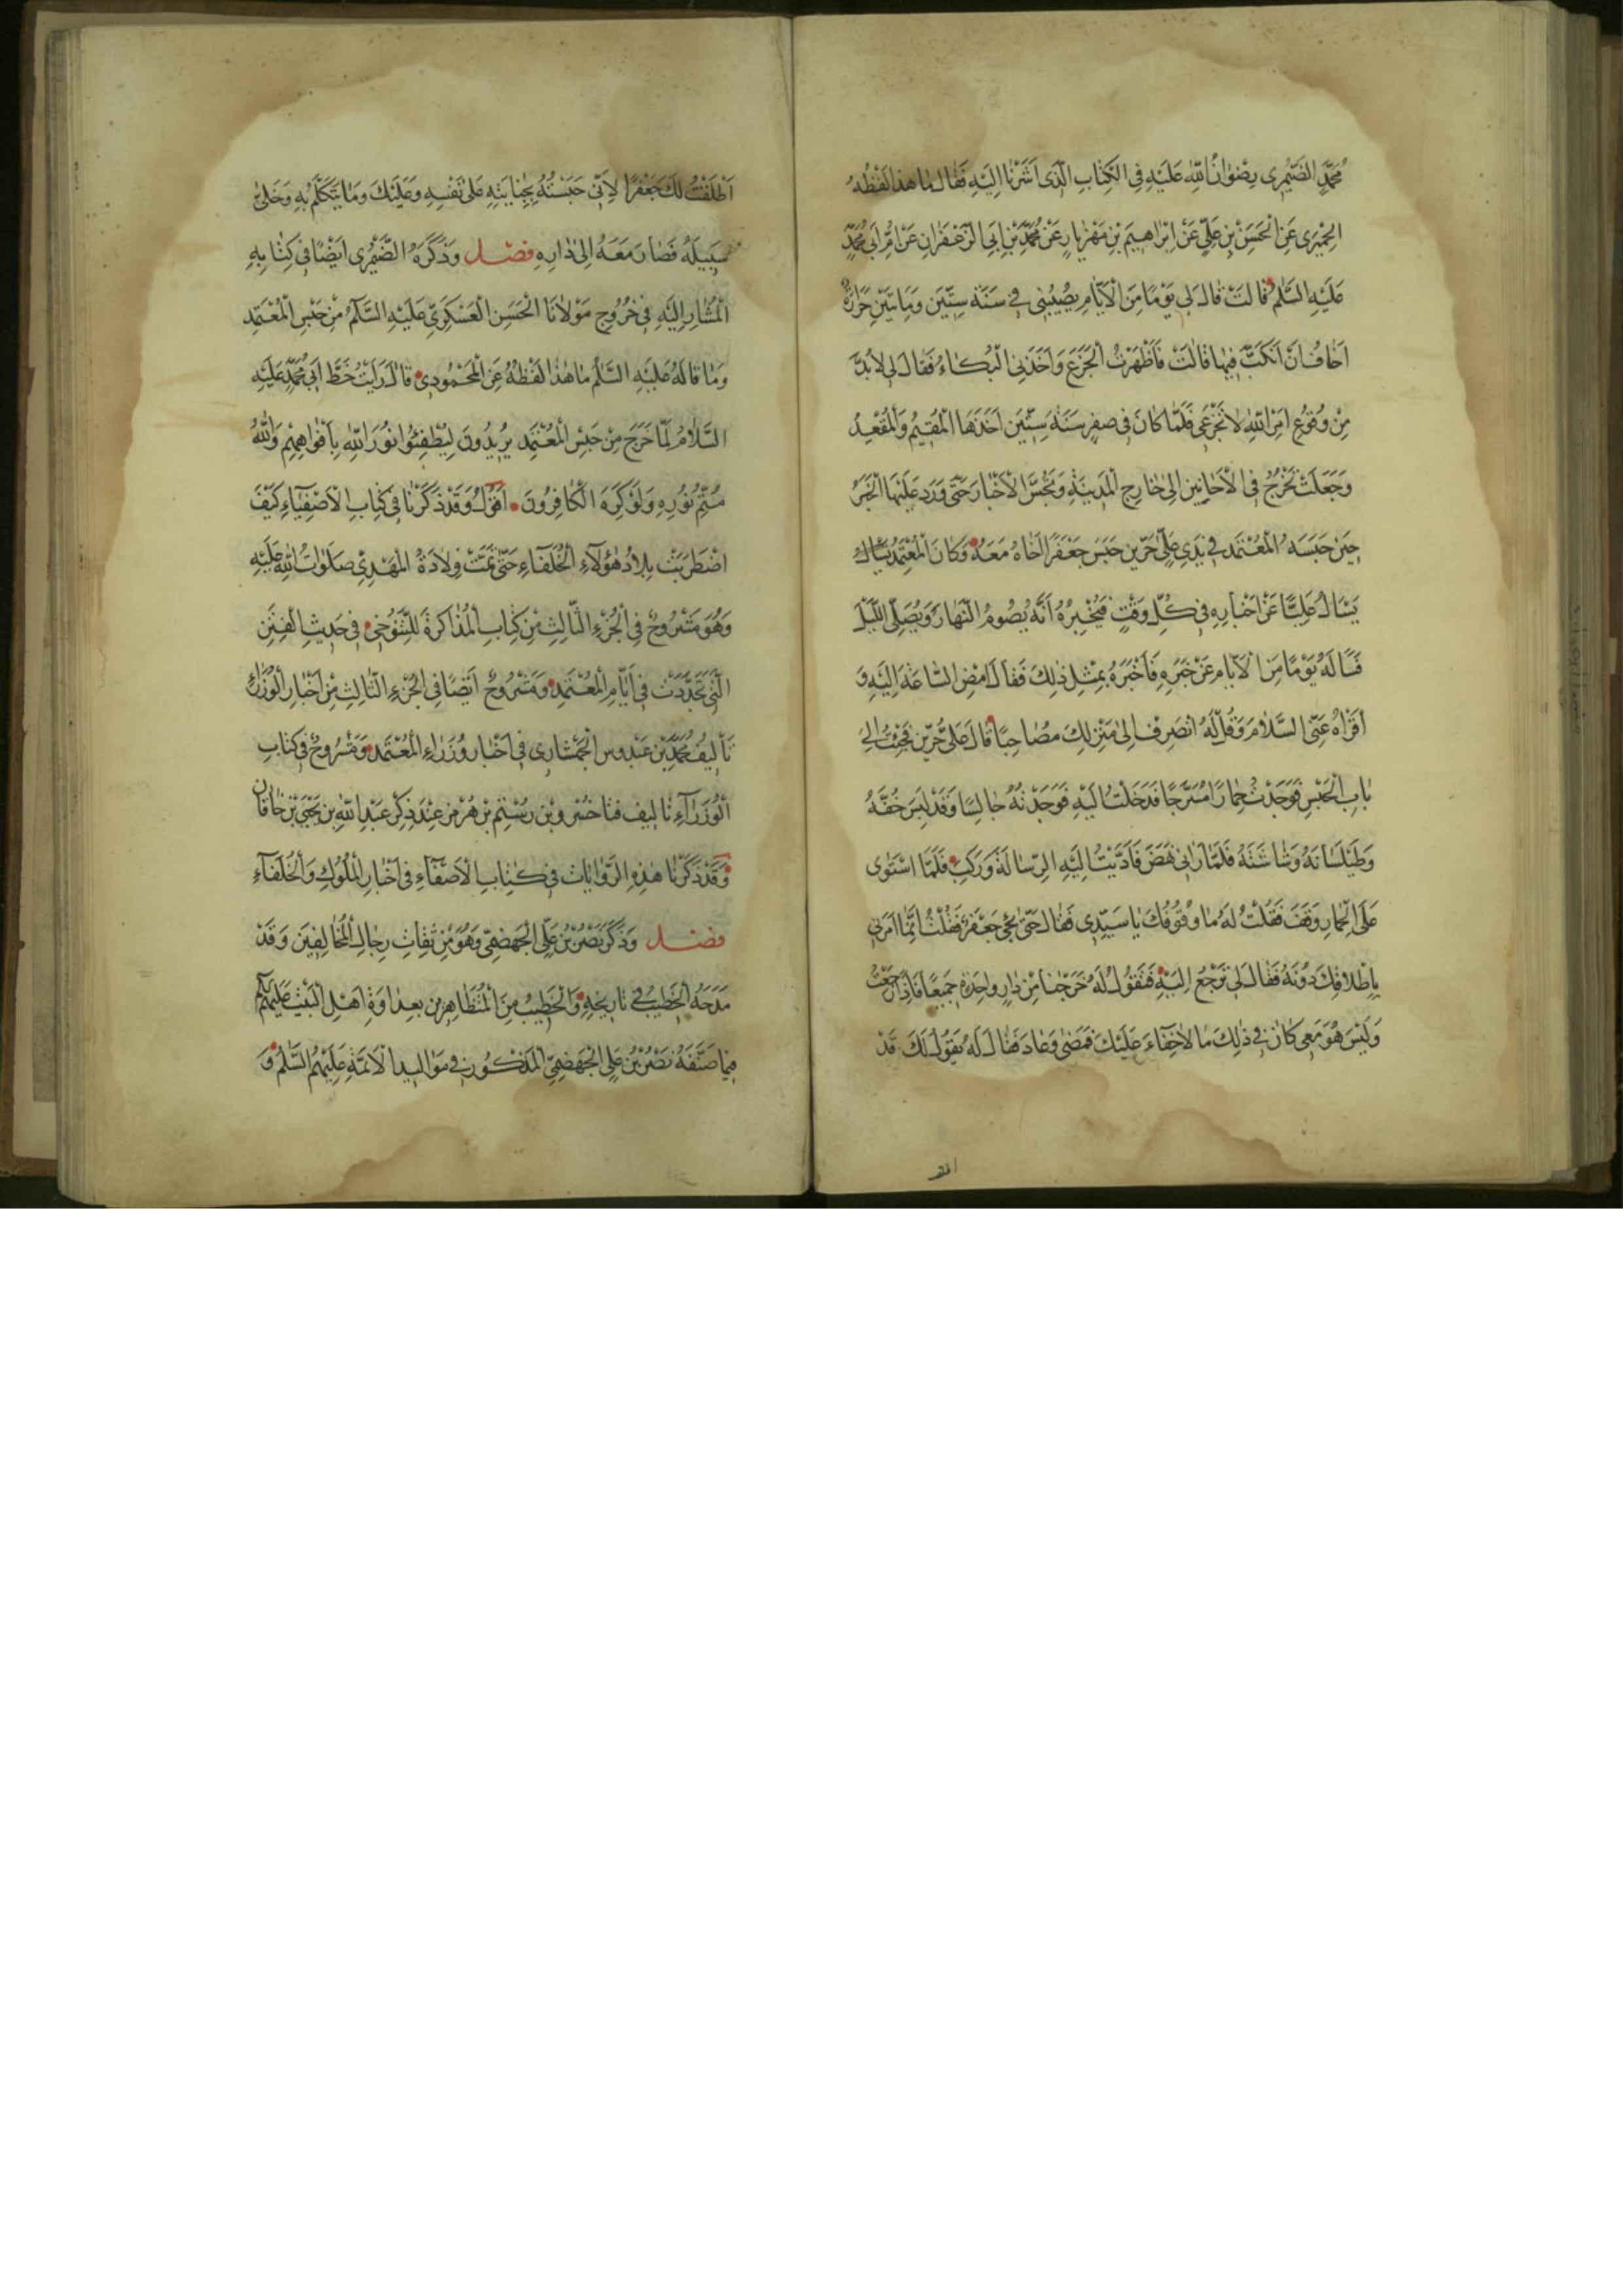 مُحَمَّدٍ الصَّيْمَرِي رِضْوَانُ اللهِ عَلَيْهِ فِي الْكِتَابِ الَّذِي اَشَرْنَا اِلَيْهِ فَقَالَ مَا هذَا لَفْظُهُ
الحِمْيَرِي عَنِ الْحَسَنِ بْنِ عَلِيٍّ عَنْ اِبْرَاهِيمَ بْنِ مَهْزِيَارٍ عَنْ مُحَمَّدِ بْنِ اَبِي الزَّعْفَرَانِ عَنْ اُمِّ اَبِي مُحَمَّدٍ
عَلَيْهِ السَّلَمُ قَالَتْ قَالَ لِي يَوْمًا مِنَ الْاَيَّامِ يُصِيبُنِي فِي سَنَةِ سِتِّينَ وَمَاتَيْنِ حَزَازَةٌ
اَخَافُ اَنْ اَنْكَبَ فِيهَا قَالَتْ فَاَظْهَرْتُ الْجَزَعَ وَاَخَذَنِي الْبُكَاءُ فَقَالَ لِي لَابُدَّ
مِنْ وُقُوعِ اَمْرِ اللهِ لَا تَجْزَعِي فَلَمَّا كَانَ فِي صَفَرِ سَنَةِ سِتِّينَ اَخَذَهَا الْمُقِيمُ وَالْمُقْعِدُ
وَجَعَلَتْ تَخْرُجُ فِي الْاَحَايِينِ اِلَى خَارِجِ الْمَدِينَةِ وَتَجُسُّ الْاَخْبَارَ حَتَّى وَرَدَ عَلَيْهَا الْخَبَرُ
حِينَ حَبَسَهُ الْمُعْتَمَد فِي يَدَي عَلِيِّ حَرِّين حَبَسَ جَعْفَرًا اَخَاهُ مَعَهُ وَكَانَ الْمُعْتَمِدُ يَسْاَلُ
يَسْالُ عَلِيًّا عَنْ اَخْبَارِهِ فِي كُلِّ وَقْتٍ فَيُخْبِرُهُ اَنَّهُ يَصُومُ النَّهَارَ وَيُصَلِّي اللَّيْلَ
فَسَالَهُ يَوْمًا مِنَ الْاَيَّامِ عَنْ خَبَرِهِ فَاَخْبَرَهُ بِمِثْلِ ذلِكَ فَقَالَ امْضِ السَّاعَةَ اِلَيْهِ وَ
اَقْرَاهُ عَنِّي السَّلَامَ وَقُلْ لَهُ انْصَرِفْ اِلَى مَنْزِلِكَ مُصَاحِبًا قَالَ عَلِيُّ حَرِّين فَجِئْتُ اِلَى
بَابِ الْحَبْسِ فَوَجَدْتُ حِمَارًا مُسَرَّجًا فَدَخَلْتُ اِلَيْهِ فَوَجَدْتُهُ جَالِسًا وَقَدْ لَبِسَ خُفَّهُ
وَطَيْلَسَانَهُ وَشَاشَتَهُ فَلَمَّا رَانِي نَهَضَ فَاَدَّيْتُ اِلَيْهِ الرِّسَالَةَ وَرَكِبَ فَلَمَّا اسْتَوَى
عَلَى الْحِمَارِ وَقَفَ فَقُلْتُ لَهُ مَا وُقُوفُكَ يَا سَيِّدِي فَقَالَ حَتَّى يَجِيَ جَعْفَرٌ فَقُلْتُ اِنَّمَا اَمَرَنِي
بِاِطْلَاقِكَ دُونَهُ فَقَالَ لِي تَرْجِعُ اِلَيْهِ فَتَقُولُ لَهُ خَرَجْنَا مِنْ دَارٍ وَاحِدَةٍ جَمِيعًا فَاِذَا رَجَعْتُ
وَلَيْسَ هُوَ مَعِي كَانَ فِي ذلِكَ مَا لَا خَفَاءَ عَلَيْكَ فَمَضَى وَعَادَ فَقَالَ لَهُ يَقُولُ لَكَ قَدْ
اَطْلَقْتُ لَكَ جَعْفَرًا لِاَنِّي حَبَسْتُهُ بِجِنَايَتِهِ عَلَى نَفْسِهِ وَعَلَيْكَ وَمَا يَتَكَلَّمُ بِهِ وَخَلَّى
سَبِيلَهُ فَصَارَ مَعَهُ اِلَى دَارِهِ فصل وَذَكَرَهُ الصَّيْمَرِي اَيْضًا فِي كِتَابِهِ
الْمُشَارِ اِلَيْهِ فِي خُرُوجِ مَوْلَانَا الْحَسَنِ الْعَسْكَرِيِّ عَلَيْهِ السَّلَمُ مِنْ حَبْسِ الْمُعْتَمِدِ
وَمَا قَالَهُ عَلَيْهِ السَّلَمُ مَا هذَا لَفْظُهُ عَنِ الْمَحْمُودِي قَالَ رَاَيْتُ خَطَّ اَبِي مُحَمَّدٍ عَلَيْهِ
السَّلَامُ لَمَّا خَرَجَ مِنْ حَبْسِ الْمُعْتَمِدِ يُرِيدُونَ لِيُطْفِئُوا نُورَ اللهِ بِاَفْوَاهِهِمْ وَاللهُ
مُتِمُّ نُورِهِ وَلَوْ كَرِهَ الْكَافِرُونَ اَقُولُ وَقَدْ ذَكَرْنَا فِي كِتَابِ الْاَصْفِيَاءِ كَيْفَ
اضْطَرَبَتْ بِلَادُ هؤُلَاءِ الْخُلَفَاءِ حَتَّى تَمَّتْ وِلَادَةُ الْمَهْدِيِّ صَلَوَاتُ اللهِ عَلَيْهِ
وَهُوَ مَشْرُوحٌ فِي الْجُزْءِ الثَّالِثِ مِنْ كِتَابِ الْمُذَاكَرَةِ لِلتَّنُوخِي فِي حَدِيثِ الْفِتَنِ
الَّتِي تَجَدَّدَتْ فِي اَيَّامِ الْمُعْتَمِدِ وَمَشْرُوحٌ اَيْضًا فِي الْجُزْءِ الثَّالِثِ مِنْ اَخْبَارِ الْوُزَرَاءِ
تَأْلِيفُ مُحَمَّدِ بْنِ عَبْدُوسِ الْجَهْشَارِي فِي اَخْبَارِ وُزَرَاءِ الْمُعْتَمَدِ وَمَشْرُوحٌ فِي كِتَابِ
الْوُزَرَاءِ تَالِيف فَنَاخُسْرُو بْنِ رُسْتَمِ بْنِ هُرْمُز عِنْدَ ذِكْرِ عَبْدِ اللهِ بْنِ يَحْيَى بْنِ خَاقَان
وَقَدْ ذَكَرْنَا هذِهِ الرِّوَايَاتِ فِي كِتَابِ الْاَصْفَاءِ فِي اَخْبَارِ الْمُلُوكِ وَالْخُلَفَاءِ
فصل وَذَكَرَ نَصْرُ بْنُ عَلِي الْجَهْضَمِيّ وَهُوَ مِنْ ثِقَاتِ رِجَالِ الْمُخَالِفِينَ وَقَدْ
مَدَحَهُ الْخَطِيبُ فِي تَارِيخِهِ وَالْخَطِيبُ مِنَ الْمُتَظَاهِرِينَ بِعِدَاوَةِ اَهْلِ الْبَيْتِ عَلَيْهِمُ
فِيمَا صَنَّفَهُ نَصْرُ بْنُ عَلِي الْجَهْضَمِيّ الْمَذْكُور فِي مَوَالِيدِ الْاَئِمَّةِ عَلَيْهِمُ السَّلَمُ وَ